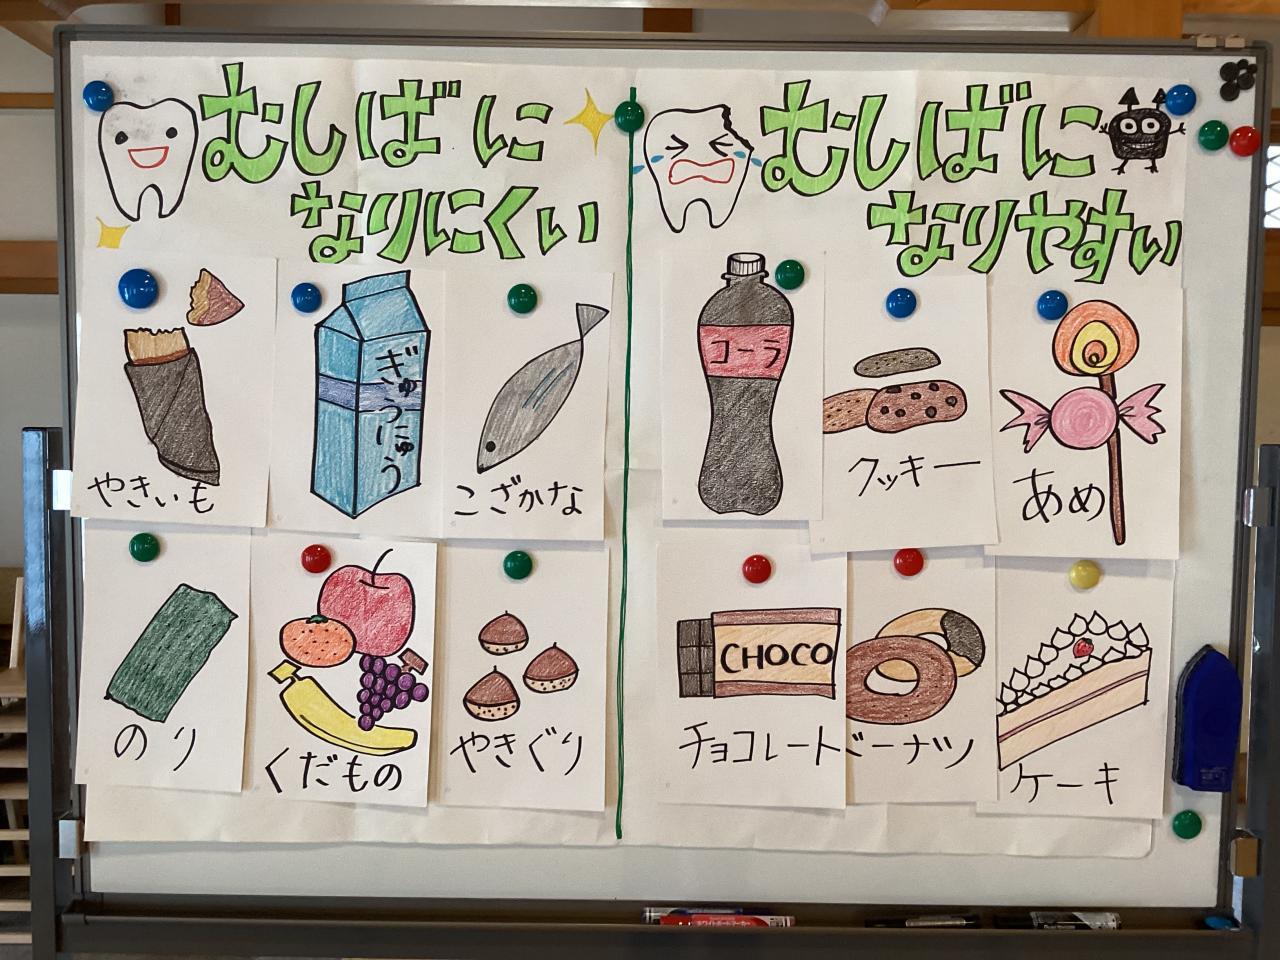 むしばに
なりにくい
やきいも
ぎゅうにゅう
こざかな
のり
くだもの
やきぐり
むしばに
なりやすい
コーラ
クッキー
あめ
CHOCO
チョコレート
ドーナツ
ケーキ